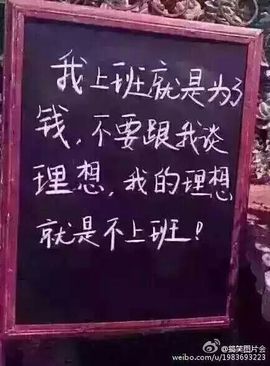 我上班就是为了
钱，不要跟我谈
理想，我的理想
就是不上班！
@搞笑图片会
weibo.com/u/1983693223